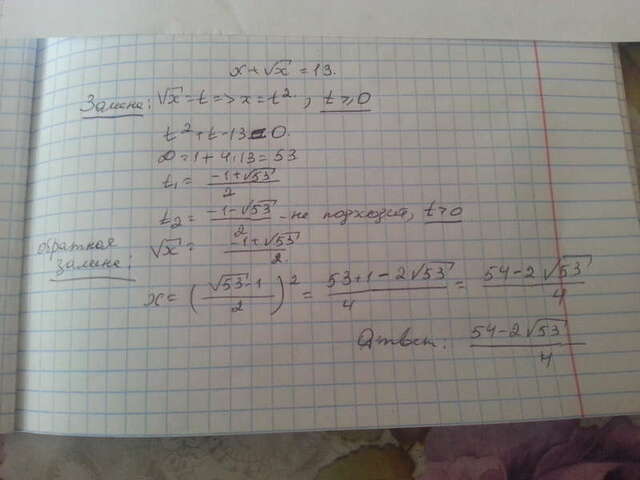 x+√x = 13.
Замена: √x = t => x = t². , t ≥ 0
t² + t - 13 = 0.
D = 1 + 4·13 = 53
t₁ = (-1+√53)/2
t₂ = (-1-√53)/2 - не подходит, t ≥ 0
обратная замена: √x = (-1+√53)/2
x = ((√53-1)/2)² = (53+1-2√53)/4 = (54-2√53)/4
Ответ: (54-2√53)/4